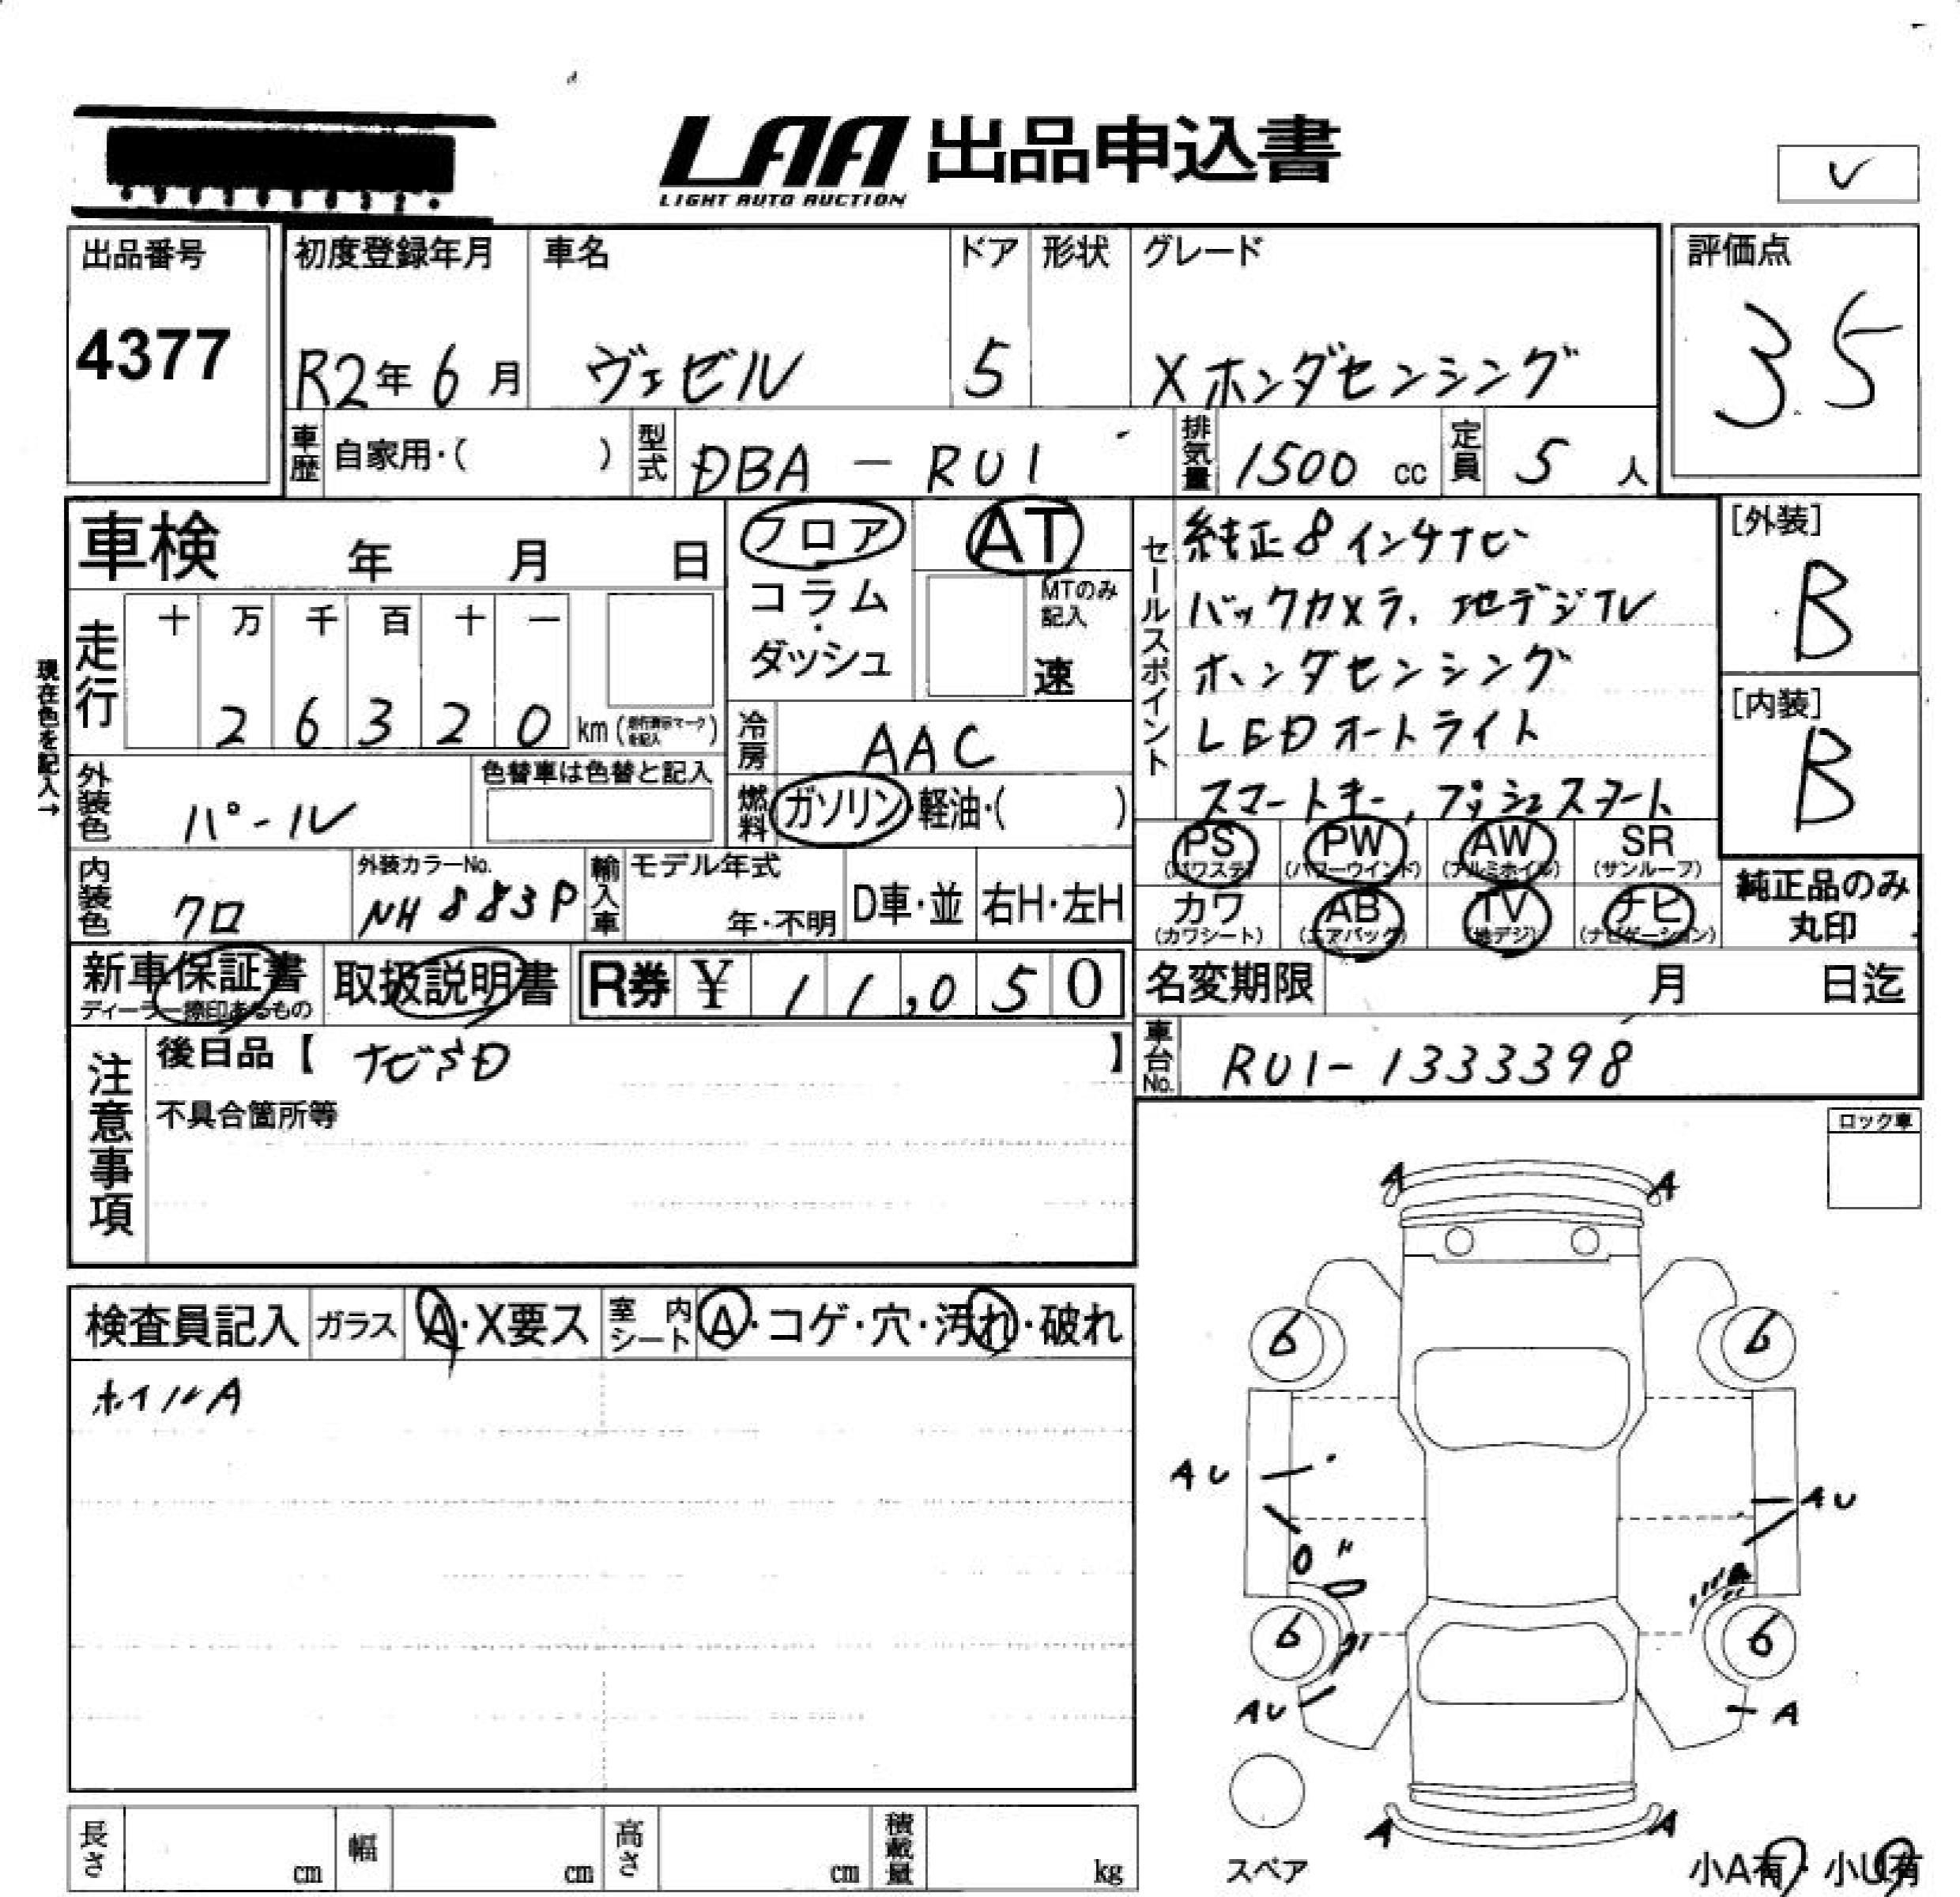 LAA 出品申込書
LIGHT AUTO AUCTION
出品番号
4377
初度登録年月
R2年 6月
車名
ヴェゼル
ドア
5
形状
グレード
X ホンダセンシング
評価点
3.5
車歴 自家用・( )
型式 DBA - RU1
排気量 1500 cc
定員 5 人
車検 年 月 日
フロア
コラム・ダッシュ
AT
MTのみ記入
速
セールスポイント
純正8インチナビ
バックカメラ、地デジTV
ホンダセンシング
LEDオートライト
スマートキー, プッシュスタート
[外装]
B
[内装]
B
現在色を記入→
走行 十 万 千 百 十 一
2 6 3 2 0 km
冷房 AAC
外装色 パール
色替車は色替と記入
燃料 ガソリン・軽油・( )
PS (パワステ) PW (パワーウインド) AW (アルミホイル) SR (サンルーフ)
カワ (カワシート) AB (エアバッグ) TV (地デジ) ナビ (ナビゲーション)
純正品のみ丸印
内装色 クロ
外装カラーNo. NH883P
輸入車 モデル年式 年・不明 D車・並 右H・左H
新車保証書
取扱説明書
R券 ¥ 11,050
名変期限 月 日迄
車台No. RU1-1333398
注意事項
後日品【 ナビSD 】
不具合箇所等
ロック車
検査員記入 ガラス A・X要ス 室内シート A・コゲ・穴・汚れ・破れ
ホイルA
A A
6 6
AU AU
6 6
AU A
A A
スペア
小A有・小U有
長さ cm 幅 cm 高さ cm 積載量 kg